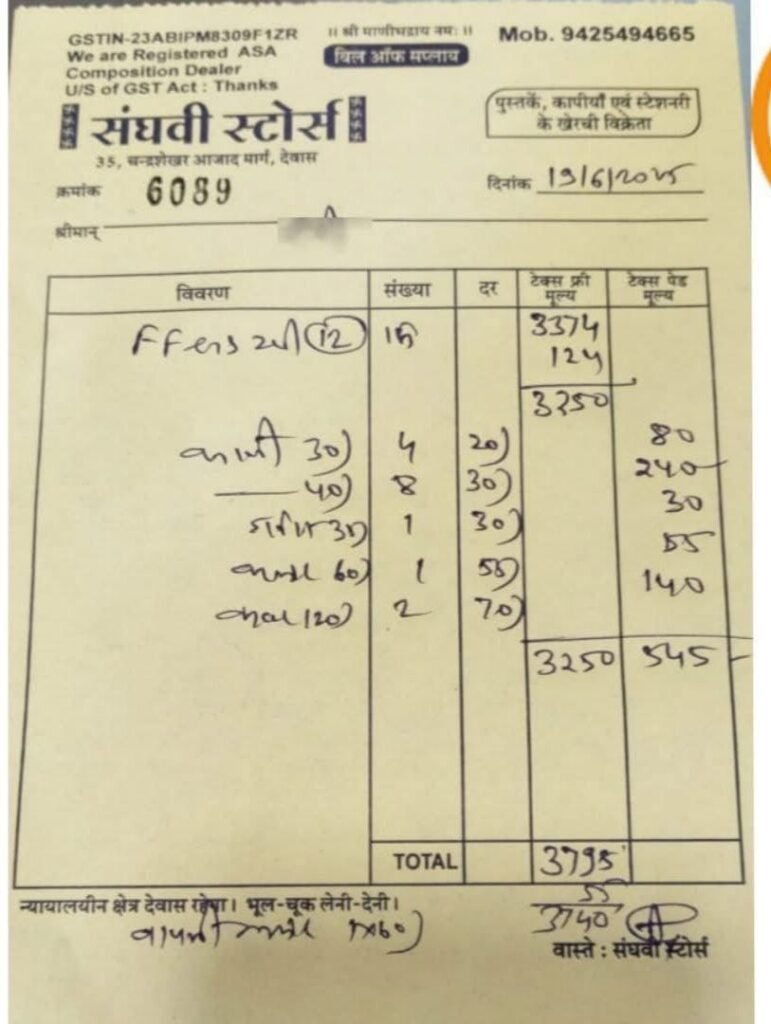 GSTIN-23ABIPM8309F1ZR
We are Registered ASA
Composition Dealer
U/S of GST Act : Thanks
॥ श्री माणीभद्राय नमः ॥
बिल ऑफ सप्लाय
Mob. 9425494665
संघवी स्टोर्स
35, चन्द्रशेखर आजाद मार्ग, देवास
पुस्तकें, कापीयाँ एवं स्टेशनरी
के खेरची विक्रेता
क्रमांक 6089
दिनांक 19/6/2025
श्रीमान्
विवरण संख्या दर टेक्स फ्री मूल्य टेक्स पेड मूल्य
12 3374
124
3250
कापी 30) 4 20) 80
40) 8 30) 240
1 30) 30
60) 1 55) 55
120) 2 70) 140
3250 545
TOTAL 3795
55
3740
न्यायालयीन क्षेत्र देवास रहेगा। भूल-चूक लेनी-देनी।
वापसी 1x60)
वास्ते : संघवी स्टोर्स